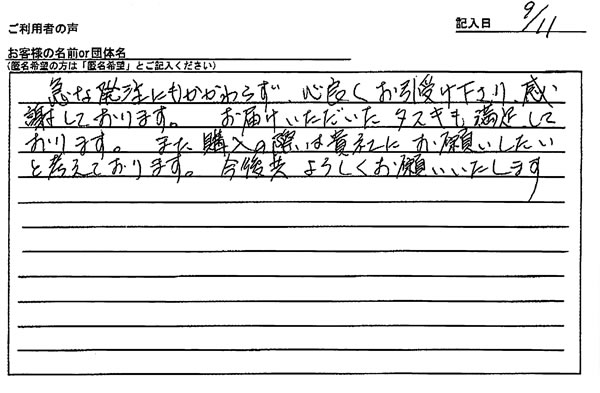 ご利用者の声
記入日 9/11
お客様の名前or団体名
(匿名希望の方は「匿名希望」とご記入ください)
急な発注にもかかわらず、心良くお引受け下さり 感
謝しております。 お届けいただいた タスキも満足して
おります。 また 購入の際は貴社に お願いしたい
と考えております。 今後共 よろしくお願いいたします